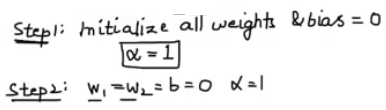 Step1: Initialize all weights & bias = 0
α = 1
Step2: w₁ = w₂ = b = 0 α = 1